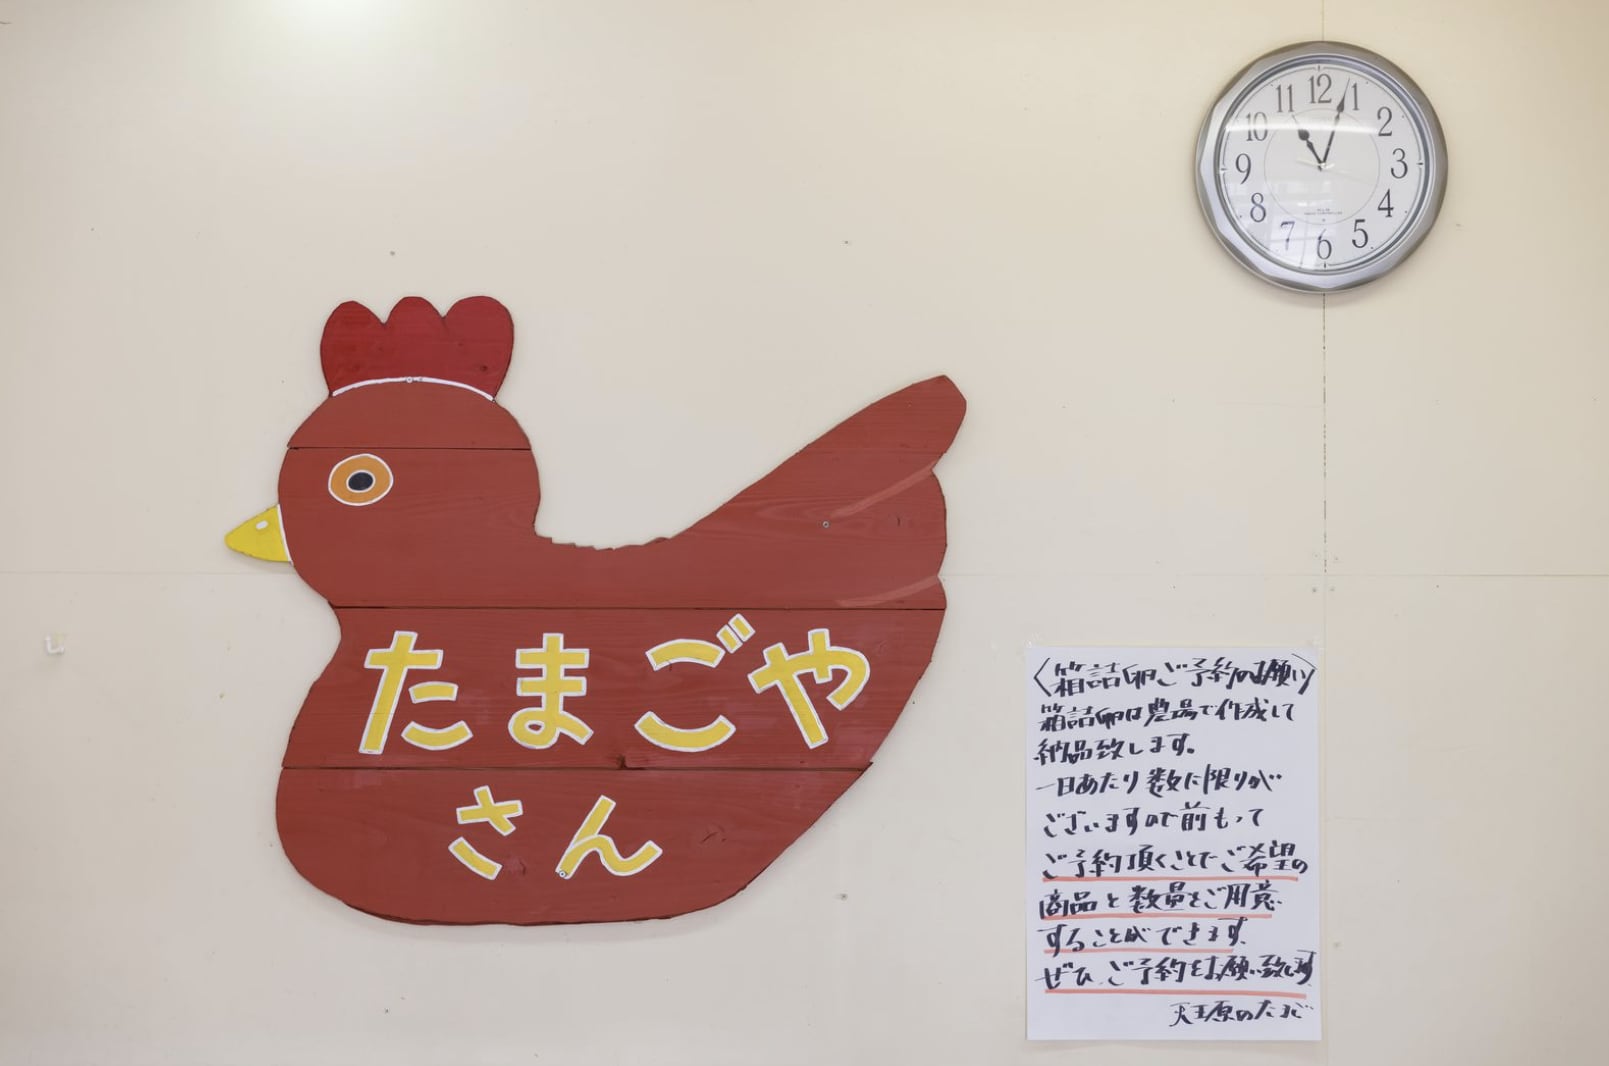 たまごや
さん
12
1
2
3
4
5
6
7
8
9
10
11
〈箱詰卵ご予約のお願い〉
箱詰卵は農場で作成して
納品致します。
一日あたり数に限りが
ございますので前もって
ご予約頂くことでご希望の
商品と数量をご用意
することができます。
ぜひ、ご予約をお願い致します
天王原のたまご